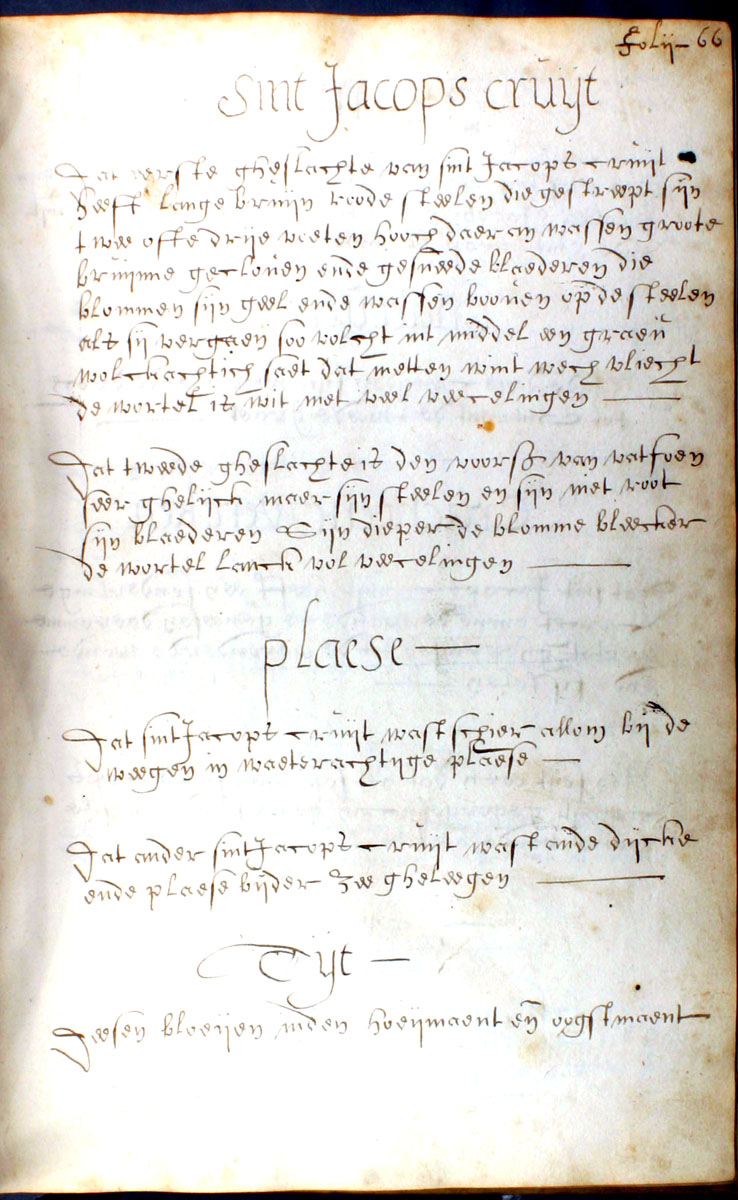 folij - 66
Sint Jacops cruijt
Dat eerste gheslachte van sint Jacops cruijt
heeft lange bruijn roode steelen die gestreept sijn
twee ofte drije voeten hooch daer an wassen groote
bruijnne gecloven ende gesneede blaederen die
blommen sijn geel ende wassen booven op de steelen
als sij vergaen soo volcht int middel een graeu
wolckachtich saet dat metten wint wech vliecht
de wortel is wit met veel veeselingen
Dat tweede gheslachte is den voors van fatsoen
seer ghelijck maer sijn steelen en sijn niet root
sijn blaederen Sijn dieper de blomme bleecker
de wortel lanck vol veeselingen
plaese
Dat sint Jacops cruijt wast schier allom bij de
weegen in waeterachtijge plaese
Dat ander sint Jacops cruijt wast ande dijcke
ende plaese bijder Zee gheleegen
Tijt
Deesen bloeijen inden hoeijmaent en oogstmaent